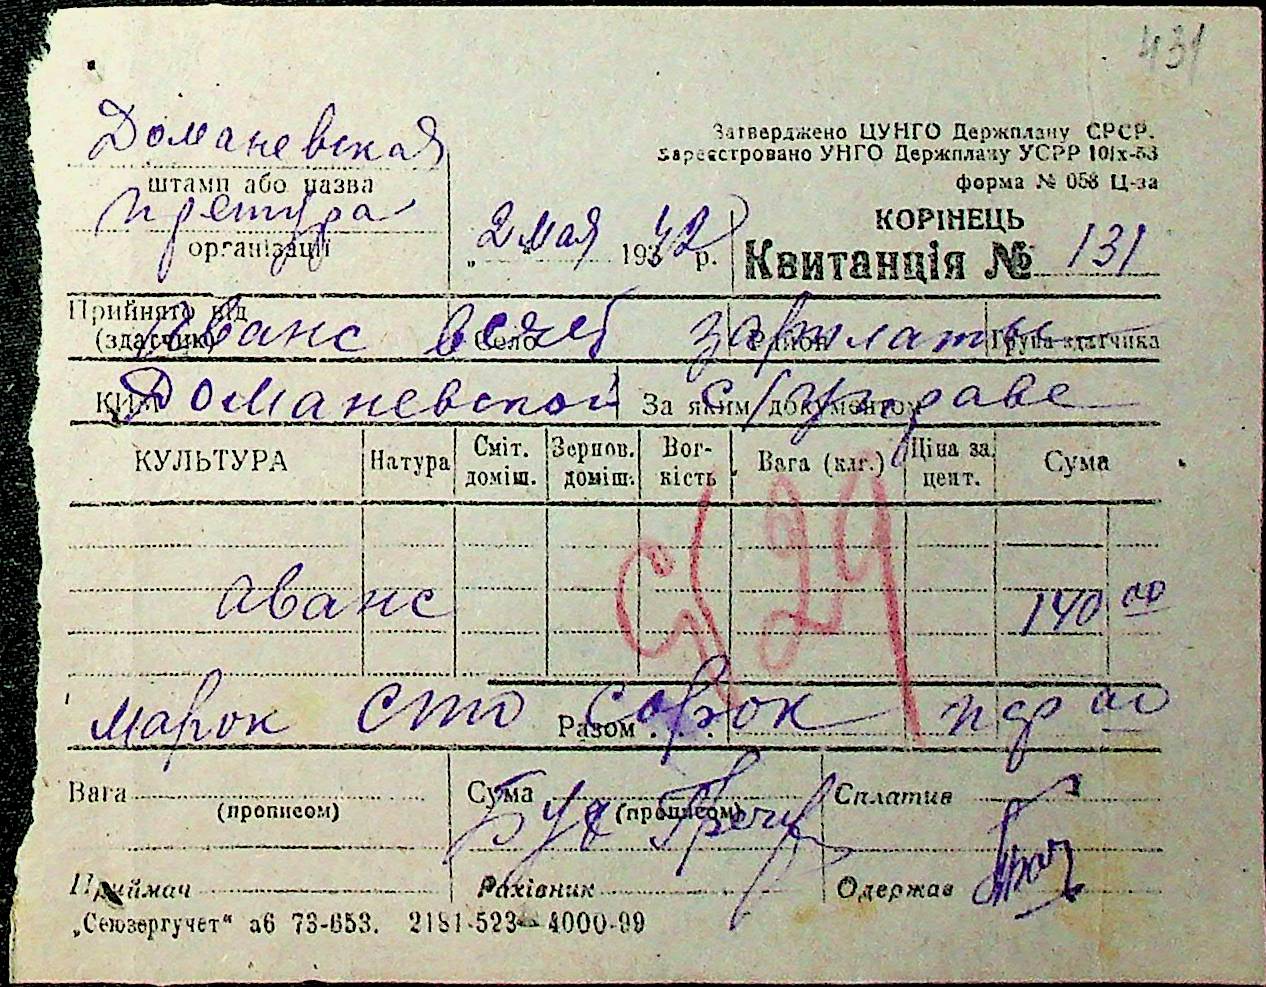 431
Доманевская
штамп або назва
претура
організації
Затверджено ЦУНГО Держплану СРСР.
Зареєстровано УНГО Держплачу УСРР 10іх-53
форма № 058 Ц-за
„ 2 мая 1942 р.
КОРІНЕЦЬ
Квитанція № 131
Прийнято від
(здатчик) Село Район Група здатчика
Аванс в счет зарплаты
КИМ За яким документом
Доманевской с/управе
КУЛЬТУРА Натура Сміт. доміш. Зернов. доміш. Вог-кість Вага (клг.) Ціна за цент. Сума
с/ 29
аванс 140 00
марок сто сорок пф 00
Разом . . .
Вага (прописом) Сума (прописом) Сплатив
Бух
Приймач Рахівник Одержав
„Сеюзергучет“ аб 73-653. 2181-523—4000-99